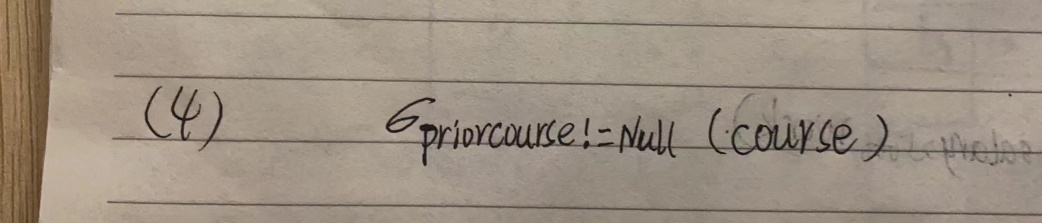 (4) σpriorcourse!=Null (course)